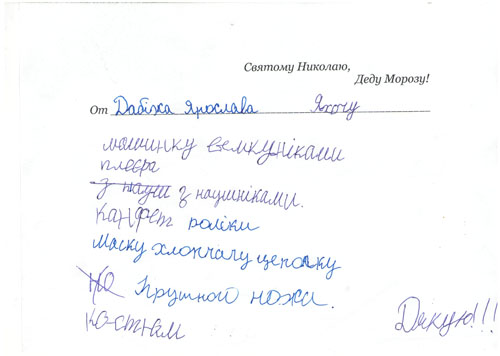 Святому Николаю,
Деду Морозу!
От Дабіжа Ярослава Яхочу
машинку
плеєра
з науш з наушніками.
канфет роліки
маску хлопчачу цепочку
Прутного ножа.
кастюм
Дякую!!!